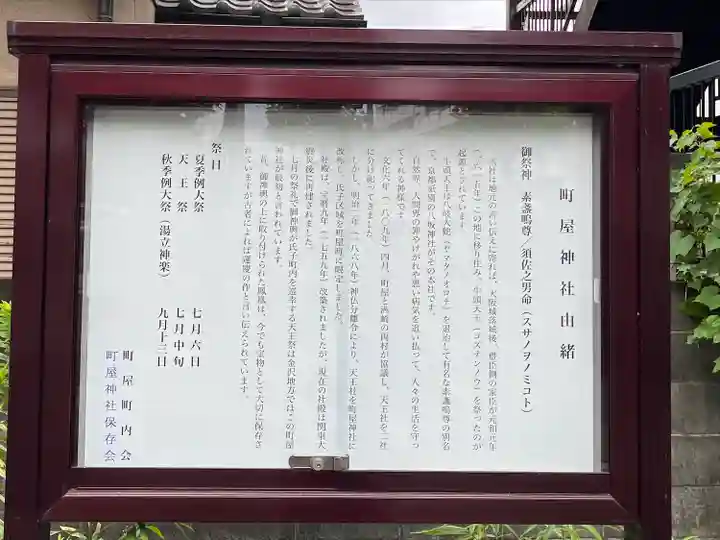 町屋神社由緒
御祭神 素盞嗚尊／須佐之男命（スサノヲノミコト）
当社は地元の言い伝えに寄れば、大阪城落城後、豊臣側の家臣が元和元年
（一六一五年）この地に移り住み、牛頭天王（ゴズテンノウ）を祭ったのが
起源とされています。
牛頭天王は八岐大蛇（ヤマタノオロチ）を退治して有名な素盞嗚尊の別名
で、京都祇園の八坂神社がその本社です。
自然界、人間界の罪やけがれや悪い病気を追い払って、人々の生活を守っ
てくれる神様です。
文化六年（一八〇九年）四月、町屋と洲崎の両村が協議し、天王社を二社
に分け祀ってきました。
しかし、明治元年（一八六八年）神仏分離令により、天王社を町屋神社に
改称し、氏子区域を町屋町に限定しました。
社殿は、宝暦九年（一七五九年）改築されましたが、現在の社殿は関東大
震災後に再建されました。
七月の祭礼で御神輿が氏子町内を巡幸する天王祭は金沢地方ではこの町屋
神社が最初と言われています。
尚、御神輿の上に取り付けられた鳳凰は、今でも宝物として大切に保存さ
れていますが古老によれば運慶の作と言い伝えられています。
祭日
夏季例大祭 七月六日
天王祭 七月中旬
秋季例大祭（湯立神楽） 九月十三日
町屋町内会
町屋神社保存会